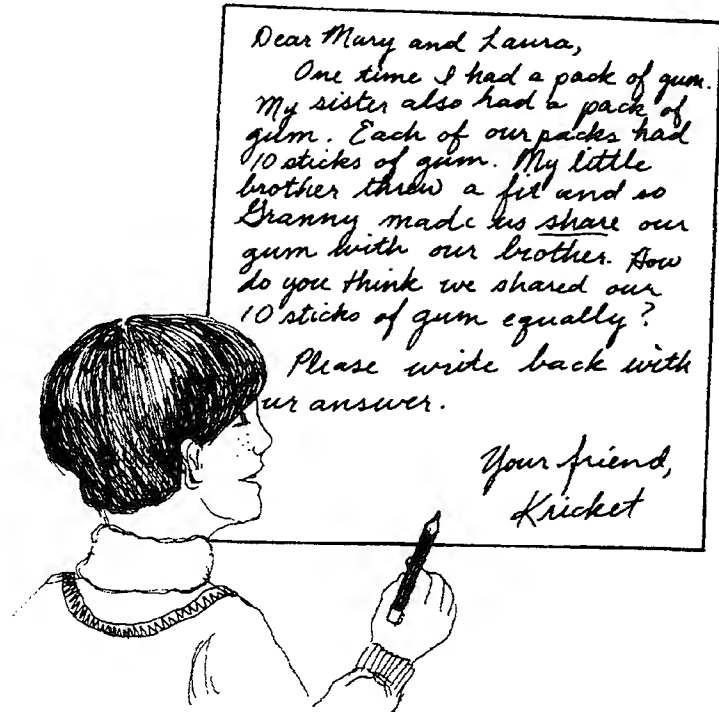 Dear Mary and Laura,
One time I had a pack of gum.
My sister also had a pack of
gum. Each of our packs had
10 sticks of gum. My little
brother threw a fit and so
Granny made us share our
gum with our brother. How
do you think we shared our
10 sticks of gum equally?
Please write back with
ur answer.
Your friend,
Kricket